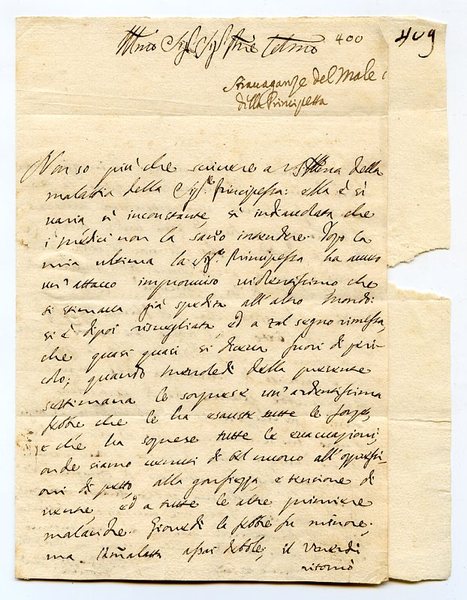 Illmo Sigr Sigr Prne Colmo
400
409
Stravaganze del Male
della Principessa
Non so più che scrivere a V.S. Illma della
malattia della Sigra Principessa: ella è sì
varia sì inconstante, sì indiavolata che
i medici non la sanno intendere. Dopo la
mia ultima la Sigra Principessa ha avuto
un'attacco improviso violentissimo che
si stimava già spedita all'altro Mondo:
si è dipoi risvegliata, ed a tal segno rimessa,
che quasi quasi si diceva fuori di peri-
colo; quando mercoledì della presente
settimana le sorprese un'ardentissima
febre che le ha esauste tutte le forze,
e che ha soprese tutte le evacuazioni;
onde siamo venuti di bel nuovo all'oppressi-
oni di petto alla gonfiezza e tensione di
ventre ed a tutte le altre primiere
malandre. Giovedì la febre fu minore.
ma l'Ammalata assai debole, il Venerdì
ritornò